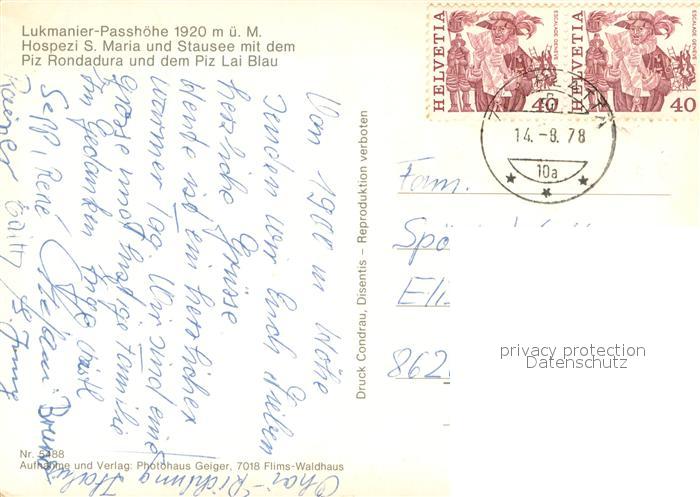 Lukmanier-Passhöhe 1920 m ü. M.
Hospezi S. Maria und Stausee mit dem
Piz Rondadura und dem Piz Lai Blau
Von 1900 m Höhe
senden wir Euch Lieben
herzliche Grüsse.
Heute ist ein herrlicher
warmer Tag. Wir sind eine
grosse und lustige Familie
In Gedanken
Sepp, René
Rainer
Richtung Italy
Nr. 5488
Aufnahme und Verlag: Photohaus Geiger, 7018 Flims-Waldhaus
Druck Condrau, Disentis – Reproduktion verboten
HELVETIA
ESCALADE GENÈVE
40
HELVETIA
ESCALADE GENÈVE
40
14.-8.78
10a
Fam.
Spö
Eli
862
privacy protection
Datenschutz